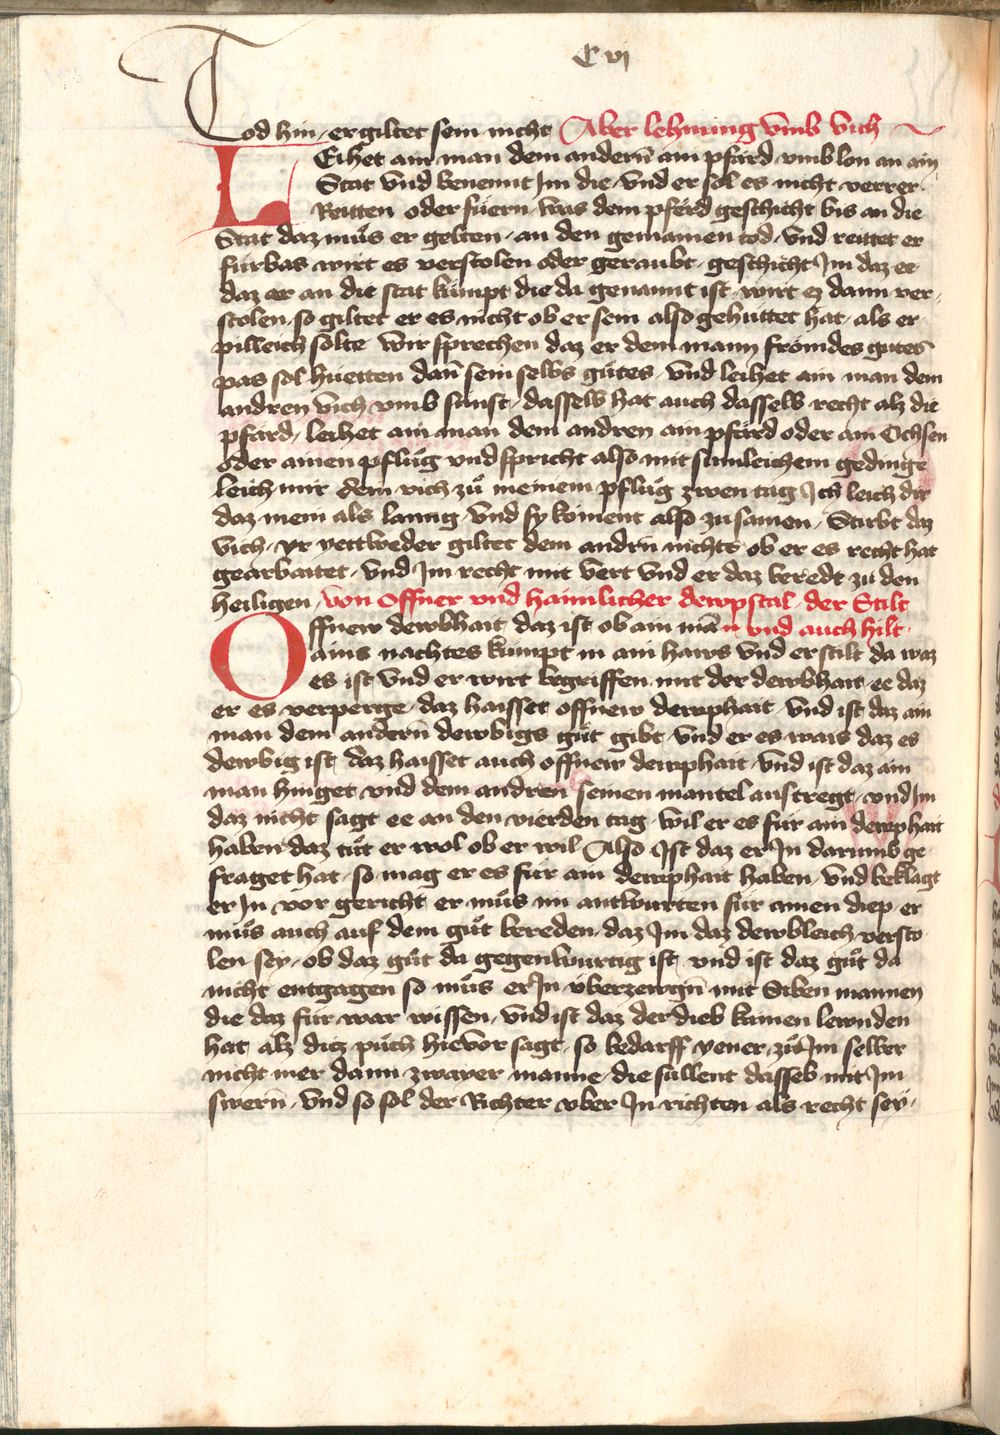 C vj
Tod hin / er giltet sein nicht Aber lehnung vmb vich
LEihet ain man dem andern̄ ain pfärd vmb lon an ain
Stat vnd benennt Im die / vnd er sol es nicht verrer
Reitten oder füern / was dem pferd geschicht bis an die
Stat daz můs er gelten / an den gemainen tod / vnd reittet er
fürbas wirt es verstolen oder geraubt / geschicht Im daz er
daz er an die stat kumpt die da genannt ist / wirt ez dann ver-
stolen / so giltet er es nicht ob er sein also gehuttet hat / als er
pilleich solte wir sprechen daz er dem mann frömdes gutes
pas sol hüetten dan̄ sein selbs gůtes / vnd leihet ain man dem
andren vich vmb sunst / dasselb hat auch dasselb recht alz die
pfärd / leihet ain man dem andren ain pfärd oder ain Ochsen
oder ainen pflůg vnd spricht also mit sumleichem gedinge
leich mir dein vich zů meinem pflůg zwen tag Ich leich dir
daz mein als lanng / vnd sy koment also zu samen / Stirbt daz
vich / yr yettweder giltet dem andrn̄ nichtz ob er es recht hat
gearbaitet / vnd Im recht mit vert vnd er daz beredt zu den
heiligen / von Offner vnd haimlicher dewpstal / der Stilt
Offnew dewbhait daz ist ob ain man̄ vnd auch hilt /
ains nachtes kumpt in ain haws vnd er stilt da waz
es ist vnd er wirt begriffen mit der dewbhait / ee daz
er es verperge / daz haisset offnew dewphait / vnd ist daz ain
man dem andern̄ dewbigs gůt gibt / vnd er es wais daz es
dewbig ist / daz haisset auch offnew dewphait / vnd ist daz ain
man hinget vnd dem andren seinen mantel austregt / vnd Im
daz nicht sagt ee an den vierden tag / wil er es für ain dewphait
haben daz tůt er wol ob er wil Also Ist daz er In darumb ge-
fraget hat / so mag er es für ain dewphait haben / vnd beklagt
er In vor gericht er můs im antwurten für ainen diep / er
můs auch auf dem gůt bereden / daz Im daz dewbleich versto-
len sey / ob daz gůt da gegenwurtig ist / vnd ist daz gůt da
nicht entgagen so můs er In vberzewgn̄ mit Siben mannen
die daz für war wissen / vnd ist daz der dieb kainen lewnden
hat alz ditz půch hievor sagt / so bedarff yener zů Im selber
nicht mer dann zwayer manne / die süllent dasselb mit Im
swern̄ / vnd so sol der Richter vber In richten als recht sey /